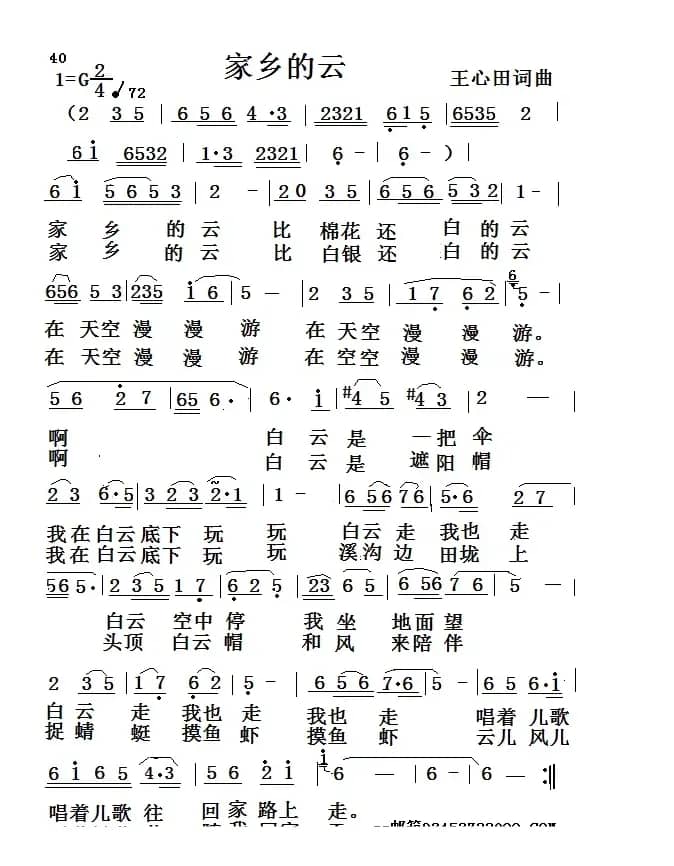 40
1=G 2/4 ♩72 家乡的云 王心田词曲
（2 3 5 | 6 5 6 4·3 | 2321 6 1 5 | 6535 2 |
6 i 6532 | 1·3 2321 | 6 - | 6 - ）|
6 i 5 6 5 3 | 2 - | 2 0 3 5 | 6 5 6 5 3 2 | 1 - |
家 乡 的 云 比 棉花 还 白 的 云
家 乡 的 云 比 白银 还 白 的 云
656 5 3 | 235 i 6 | 5 — | 2 3 5 | 1 7 6 2 | 6 5 — |
在 天空 漫 漫 游 在 天空 漫 漫 游。
在 天空 漫 漫 游 在 空空 漫 漫 游。
5 6 2 7 | 65 6· | 6· i | #4 5 #4 3 | 2 — |
啊 白 云 是 一 把 伞
啊 白 云 是 遮 阳 帽
2 3 6·5 | 3 2 3 2·1 | 1 - | 6 56 76 | 5·6 2 7 |
我 在 白云 底 下 玩 玩 白云 走 我 也 走
我 在 白云 底 下 玩 玩 溪 沟 边 田 垅 上
565 5· | 2 3 5 1 7 | 6 2 5 | 23 6 5 | 6 56 7 6 | 5 |
白 云 空 中 停 我 坐 地 面 望
头 顶 白 云 帽 和 风 来 陪 伴
2 3 5 | 1 7 6 2 | 5 - | 6 5 6 7·6 | 5 - | 6 5 6·i |
白 云 走 我也 走 我也 走 唱着 儿歌
捉 蜻 蜓 摸鱼 虾 摸鱼 虾 云儿 风儿
6 i 6 5 | 4·3 | 5 6 2 i | i 6 — | 6 - 6 - :‖
唱着 儿歌 往 回 家 路 上 走。